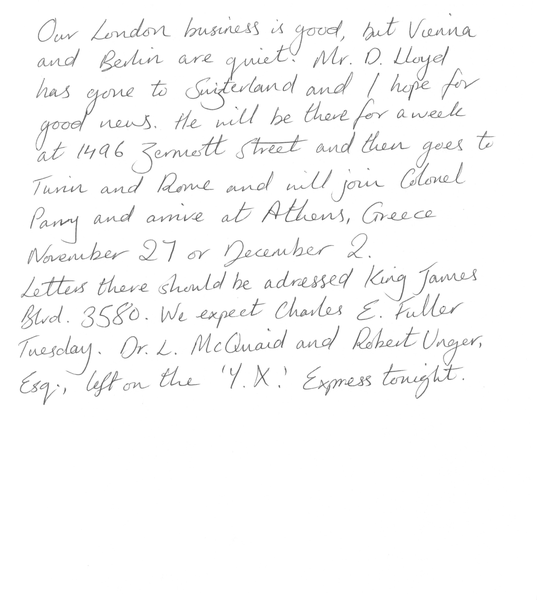 Our London business is good, but Vienna
and Berlin are quiet. Mr. D. Lloyd
has gone to Swizterland and I hope for
good news. He will be there for a week
at 1496 Zermott Street and then goes to
Turin and Rome and will join Colonel
Parry and arrive at Athens, Greece
November 27 or December 2.
Letters there should be adressed King James
Blvd. 3580. We expect Charles E. Fuller
Tuesday. Dr. L. McQuaid and Robert Unger,
Esq., left on the 'Y.X.' Express tonight.